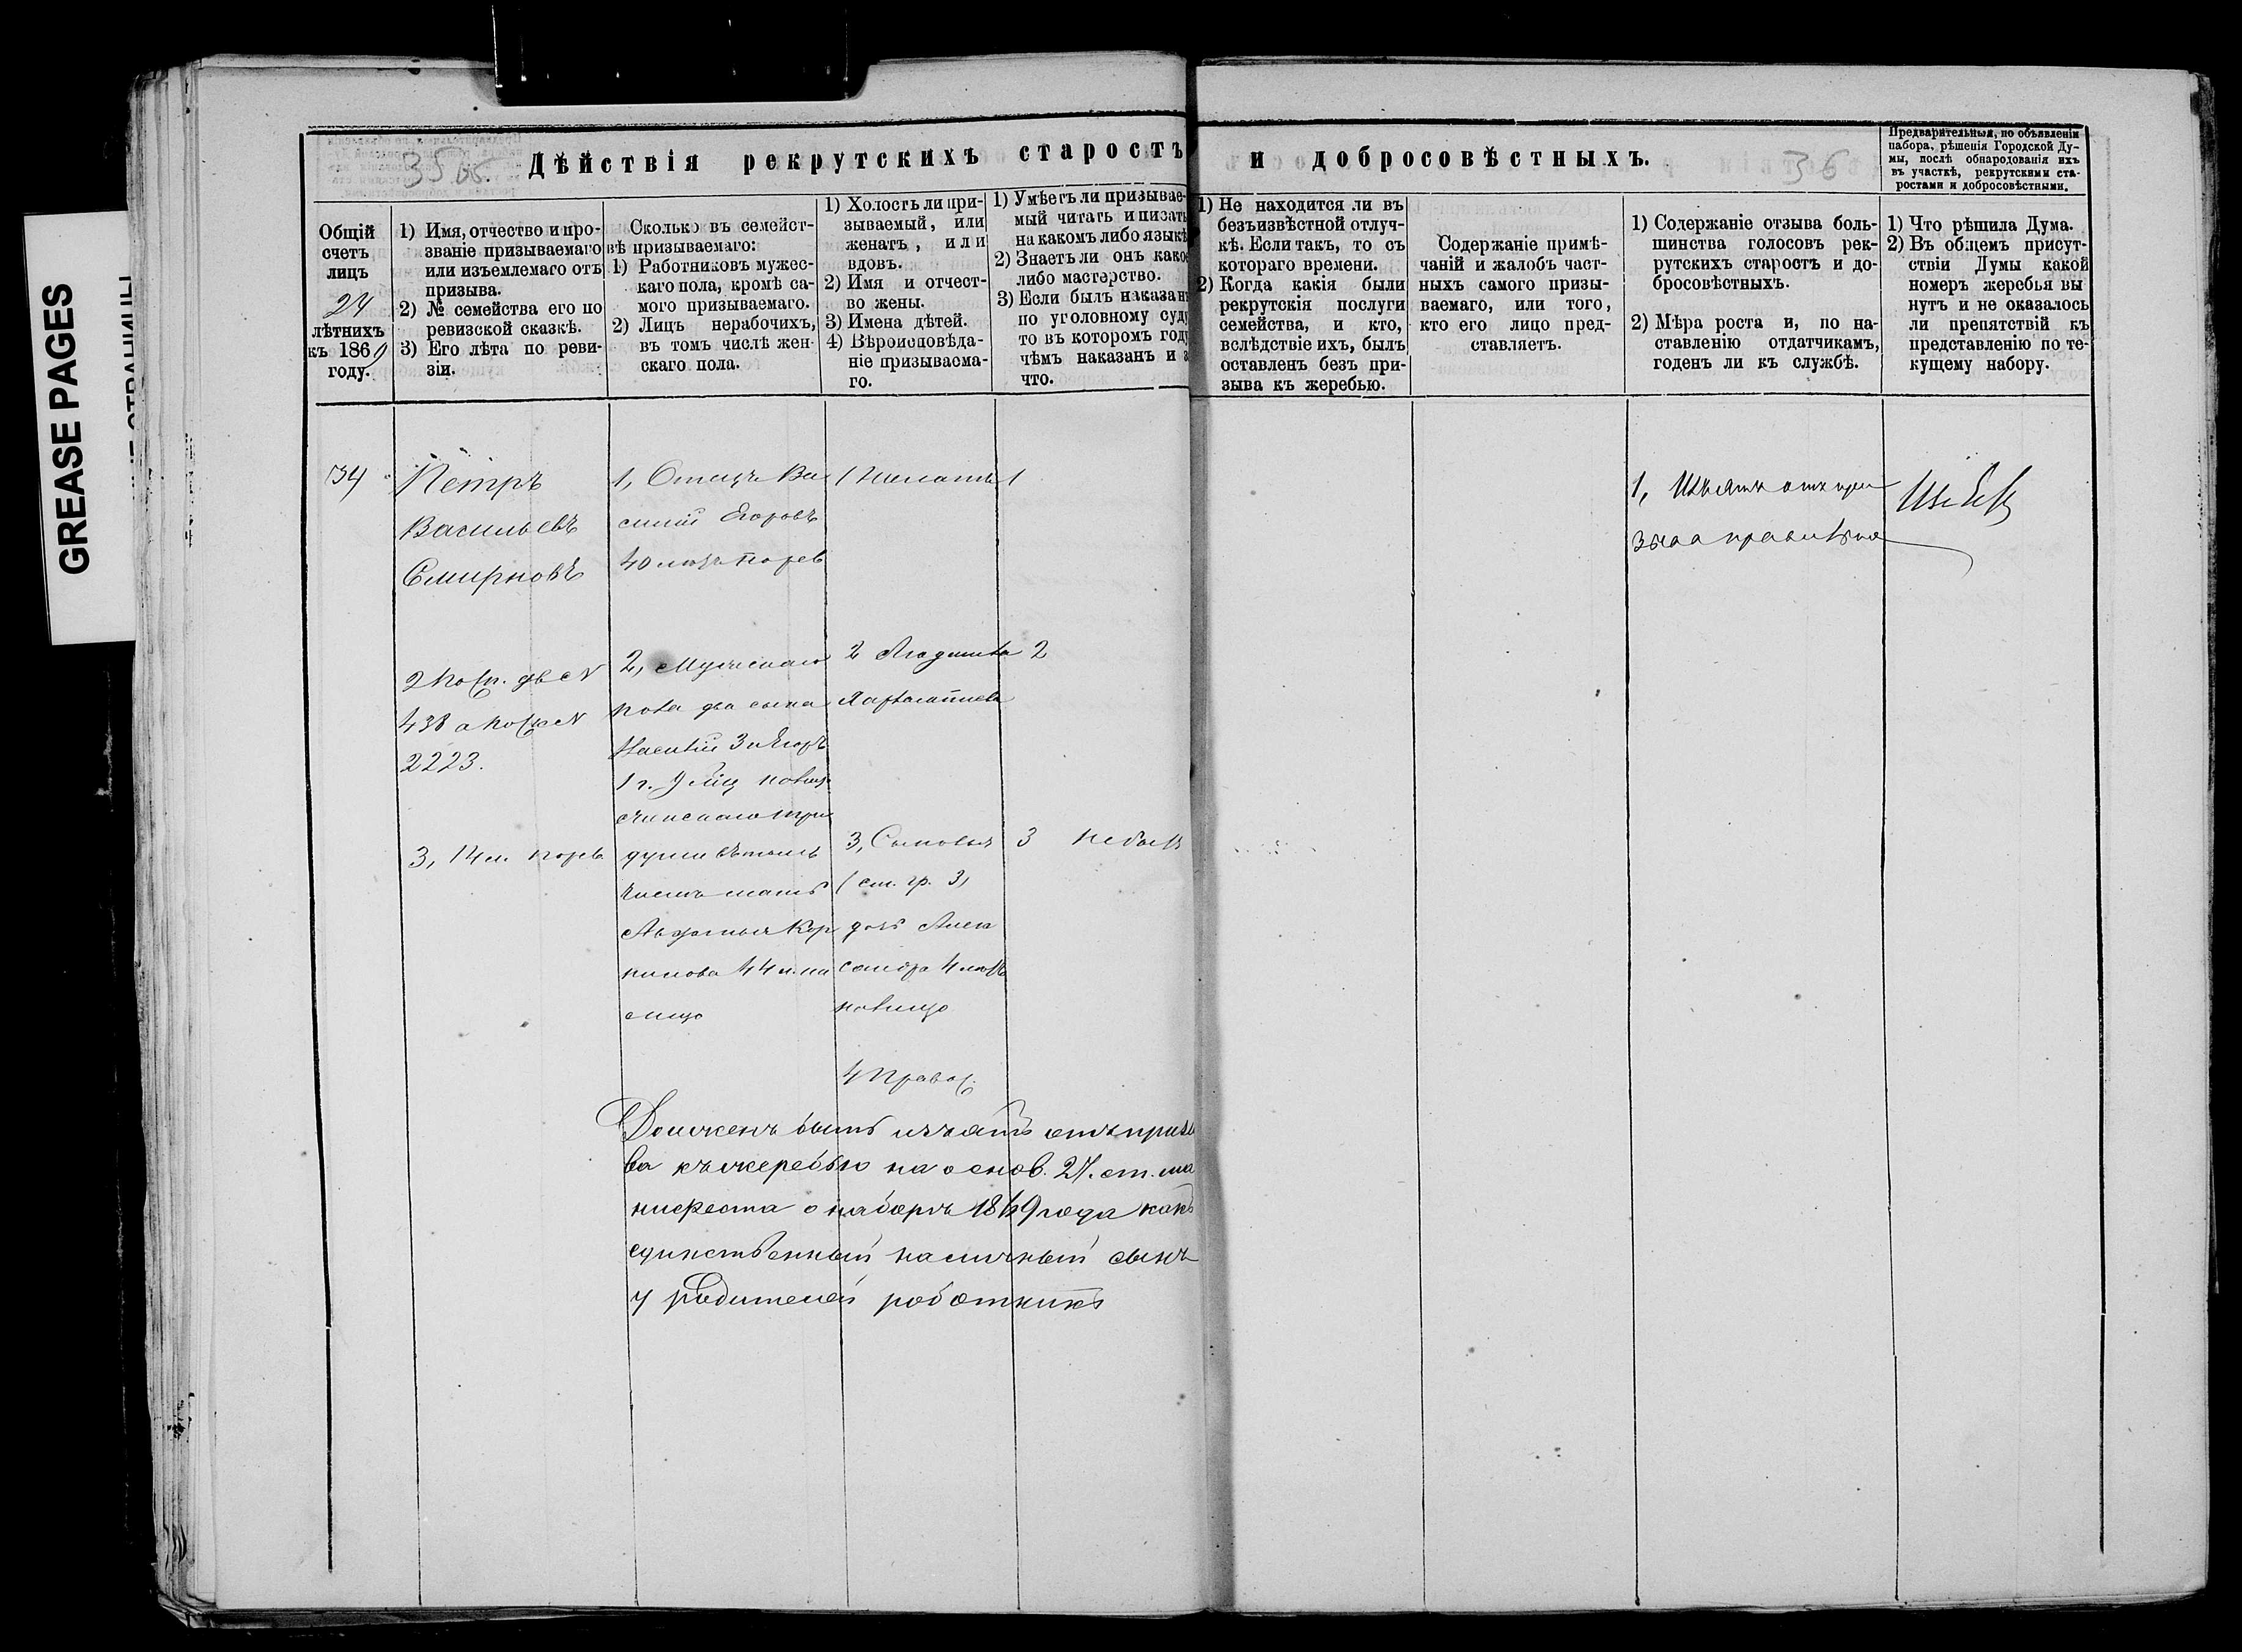 GREASE PAGES
35 об.
Дѣйствія рекрутскихъ старостъ и добросовѣстныхъ.
36
Предварительныя, по объявленіи
набора, рѣшенія Городской Ду-
мы, послѣ обнародованія ихъ
въ участкѣ, рекрутскими ста-
ростами и добросовѣстными.
Общій
счетъ
лицъ
24
лѣтнихъ
къ 1869
году.
1) Имя, отчество и про-
званіе призываемаго
или изъемлемаго отъ
призыва.
2) № семейства его по
ревизской сказкѣ.
3) Его лѣта по реви-
зіи.
Сколько въ семейст-
вѣ призываемаго:
1) Работниковъ мужес-
каго пола, кромѣ са-
мого призываемаго.
2) Лицъ нерабочихъ,
въ томъ числѣ жен-
скаго пола.
1) Холостъ ли при-
зываемый, или
женатъ, или
вдовъ.
2) Имя и отчест-
во жены.
3) Имена дѣтей.
4) Вѣроисповѣда-
ніе призываема-
го.
1) Умѣетъ ли призывае-
мый читать и писать
на какомъ либо языкѣ
2) Знаетъ ли онъ какое
либо мастерство.
3) Если былъ наказанъ
по уголовному суду
то въ которомъ году
чѣмъ наказанъ и з
что.
1) Не находится ли въ
безъизвѣстной отлуч-
кѣ. Если такъ, то съ
котораго времени.
2) Когда какія были
рекрутскія послуги
семейства, и кто,
вслѣдствіе ихъ, былъ
оставленъ безъ при-
зыва къ жеребью.
Содержаніе примѣ-
чаній и жалобъ част-
ныхъ самого призы-
ваемаго, или того,
кто его лицо пред-
ставляетъ.
1) Содержаніе отзыва боль-
шинства голосовъ рек-
рутскихъ старостъ и до-
бросовѣстныхъ.
2) Мѣра роста и, по на-
ставленію отдатчикамъ,
годенъ ли къ службѣ.
1) Что рѣшила Дума.
2) Въ общемъ присут-
ствіи Думы какой
номеръ жеребья вы
нутъ и не оказалось
ли препятствій къ
представленію по те-
кущему набору.
34
Петръ
Васильевъ
Смирновъ
438
2223.
3, 14 л. по рев
1, Отецъ Ва
силій Егоровъ
40 лѣтъ по рев
2, Мужескаго
пола два сына
Василій 3 и Егоръ
1 г. 9 мѣц
женскаго три
души въ томъ
числѣ мать
44 л. на
лицо
1 Женатъ
2
3, Сыновья
(см. гр. 3)
дочь Алек
сандра 4 лѣтъ
налицо
4 Правос.
1
2
3 не былъ
Долженъ быть изъятъ отъ призы
ва къ жеребью на основ. 27. ст. ма
нифеста о наборѣ 1869 года какъ
единственный наличный сынъ
у родителей работникъ
1, Изъять отъ при
зыва правильно